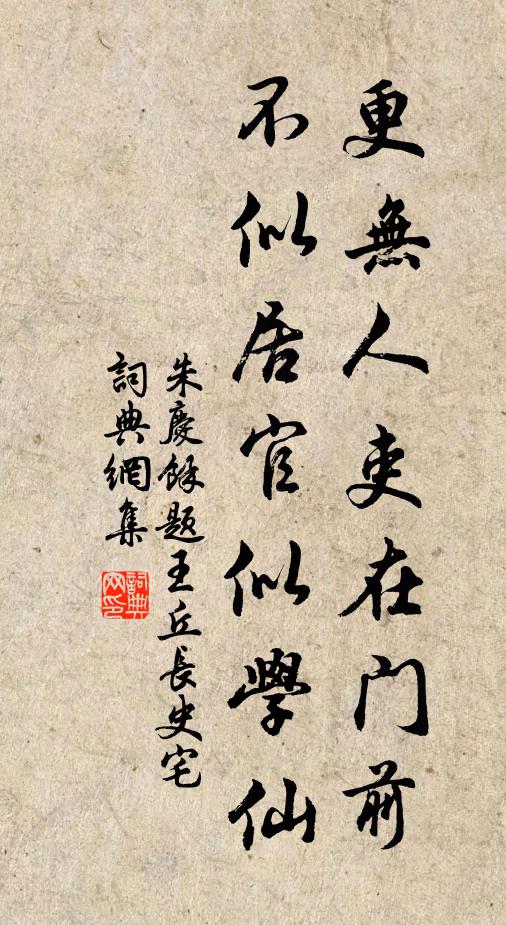 更無人吏在門前
不似居官似學仙
朱慶餘題王丘長史宅
詞典網集
詞典网印